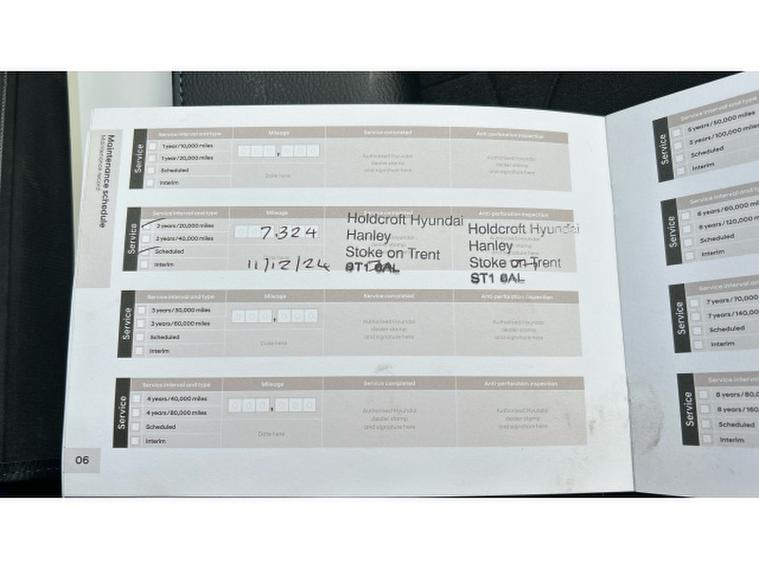 Maintenance schedule
Maintenance record
Service
Service interval and type Mileage Service completed Anti-perforation inspection
1 year/10,000 miles
1 year/20,000 miles
Scheduled
Interim
Date here
Authorised Hyundai dealer stamp and signature here
Authorised Hyundai dealer stamp and signature here
Service
Service interval and type Mileage Anti-perforation inspection
2 years/20,000 miles
2 years/40,000 miles
Scheduled
Interim
7,324
11/12/24
Holdcroft Hyundai
Hanley
Stoke on Trent
Holdcroft Hyundai
Hanley
Stoke on Trent
Service
Service interval and type Mileage Service completed Anti-perforation inspection
3 years/30,000 miles
3 years/60,000 miles
Scheduled
Interim
Date here
Authorised Hyundai
dealer stamp
and signature here
Authorised Hyundai
dealer stamp
and signature here
Service
Service interval and type Mileage Service completed Anti-perforation inspection
4 years/40,000 miles
4 years/80,000 miles
Scheduled
Interim
Date here
Authorised Hyundai
dealer stamp
and signature here
Authorised Hyundai
dealer stamp
and signature here
06
Service
Service interval and type
5 years/50,000 miles
5 years/100,000 miles
Scheduled
Interim
Service
Service interval and
6 years/60,000
6 years/120,000
Scheduled
Interim
Service
Service interval and
7 years/70,000
7 years/140,00
Scheduled
Interim
Service
Service interval and
8 years/80,0
8 years/160,
Scheduled
Interim